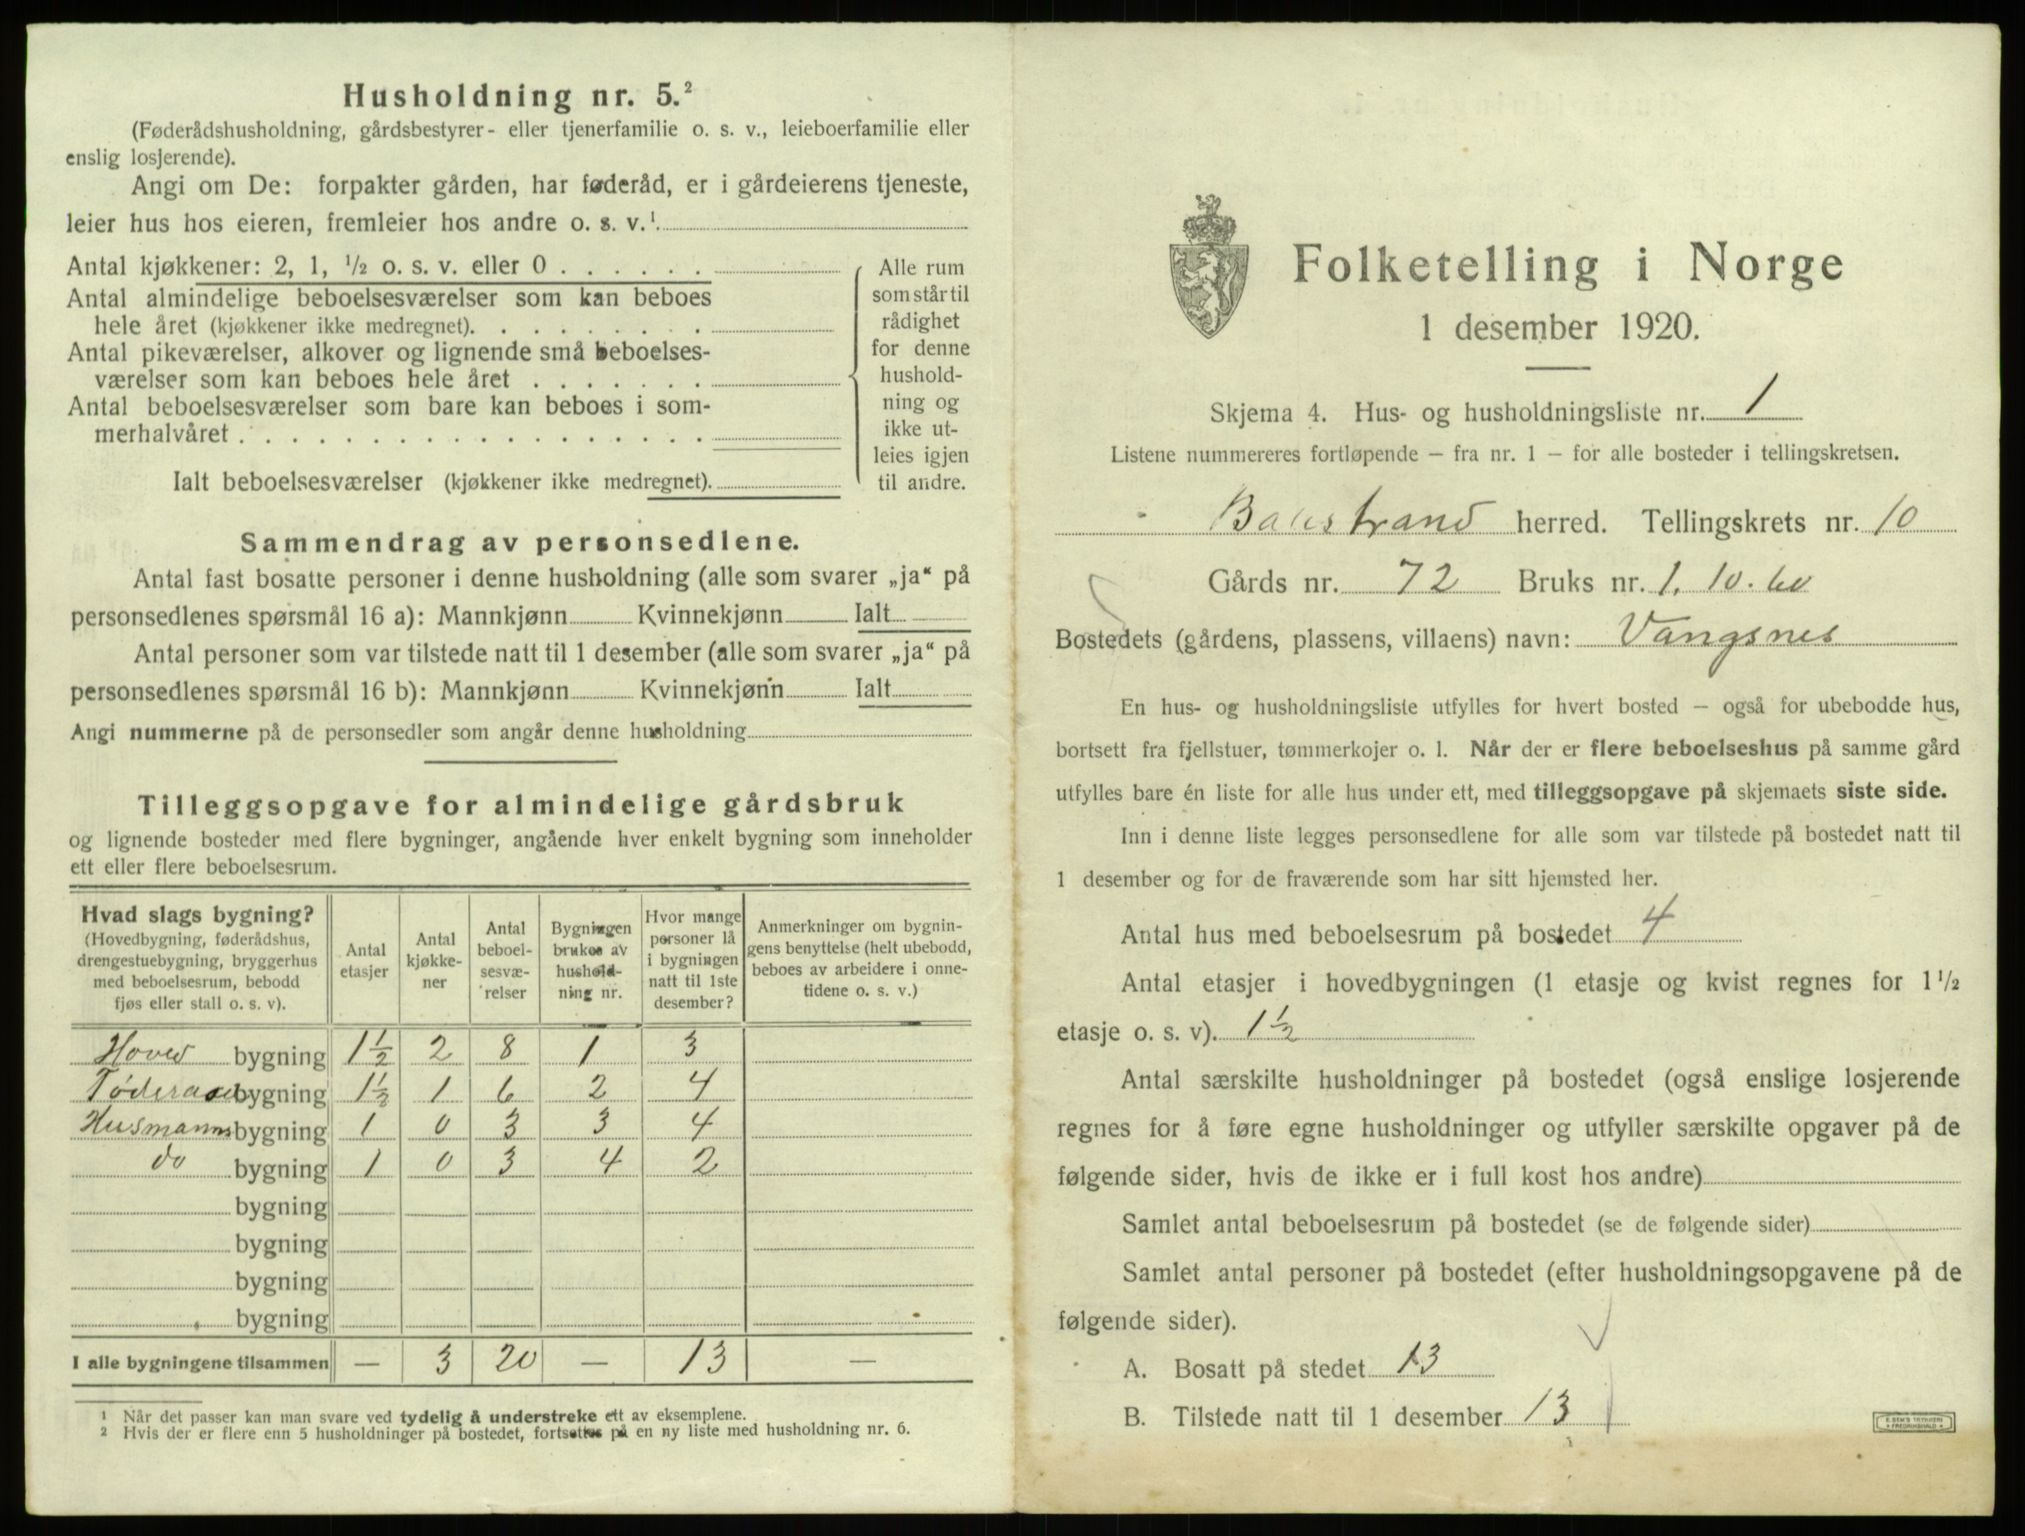 Husholdning nr. 5.²
(Føderådshusholdning, gårdsbestyrer- eller tjenerfamilie o. s. v., leieboerfamilie eller
enslig losjerende).
Angi om De: forpakter gården, har føderåd, er i gårdeierens tjeneste,
leier hus hos eieren, fremleier hos andre o. s. v.¹
Antal kjøkkener: 2, 1, ½ o. s. v. eller 0
Antal almindelige beboelsesværelser som kan beboes
hele året (kjøkkener ikke medregnet).
Antal pikeværelser, alkover og lignende små beboelses-
værelser som kan beboes hele året
Antal beboelsesværelser som bare kan beboes i som-
merhalvåret
Ialt beboelsesværelser (kjøkkener ikke medregnet).
Alle rum
som står til
rådighet
for denne
hushold-
ning og
ikke ut-
leies igjen
til andre.
Sammendrag av personsedlene.
Antal fast bosatte personer i denne husholdning (alle som svarer „ja“ på
personsedlenes spørsmål 16 a): Mannkjønn Kvinnekjønn Ialt
Antal personer som var tilstede natt til 1 desember (alle som svarer „ja“ på
personsedlenes spørsmål 16 b): Mannkjønn Kvinnekjønn Ialt
Angi nummerne på de personsedler som angår denne husholdning
Tilleggsopgave for almindelige gårdsbruk
og lignende bosteder med flere bygninger, angående hver enkelt bygning som inneholder
ett eller flere beboelsesrum.
Hvad slags bygning?
(Hovedbygning, føderådshus,
drengestuebygning, bryggerhus
med beboelsesrum, bebodd
fjøs eller stall o. s. v).
Antal
etasjer
Antal
kjøkke-
ner
Antal
beboel-
sesvæ-
relser
Bygningen
brukes av
hushold-
ning nr.
Hvor mange
personer lå
i bygningen
natt til 1ste
desember?
Anmerkninger om bygnin-
gens benyttelse (helt ubebodd,
beboes av arbeidere i onne-
tidene o. s. v.)
Hoved bygning 1½ 2 8 1 3
bygning 1½ 1 6 2 4
Husmanns bygning 1 0 3 3 4
do bygning 1 0 3 4 2
bygning
bygning
bygning
bygning
I alle bygningene tilsammen — 3 20 — 13 —
¹ Når det passer kan man svare ved tydelig å understreke ett av eksemplene.
² Hvis der er flere enn 5 husholdninger på bostedet, fortsettes på en ny liste med husholdning nr. 6.
Folketelling i Norge
1 desember 1920.
Skjema 4. Hus- og husholdningsliste nr. 1
Listene nummereres fortløpende – fra nr. 1 – for alle bosteder i tellingskretsen.
Balestrand herred. Tellingskrets nr. 10
Gårds nr. 72 Bruks nr. 1. 10. 60
Bostedets (gårdens, plassens, villaens) navn: Vangsnes
En hus- og husholdningsliste utfylles for hvert bosted – også for ubebodde hus,
bortsett fra fjellstuer, tømmerkojer o. l. Når der er flere beboelseshus på samme gård
utfylles bare én liste for alle hus under ett, med tilleggsopgave på skjemaets siste side.
Inn i denne liste legges personsedlene for alle som var tilstede på bostedet natt til
1 desember og for de fraværende som har sitt hjemsted her.
Antal hus med beboelsesrum på bostedet 4
Antal etasjer i hovedbygningen (1 etasje og kvist regnes for 1½
etasje o. s. v). 1½
Antal særskilte husholdninger på bostedet (også enslige losjerende
regnes for å føre egne husholdninger og utfyller særskilte opgaver på de
følgende sider, hvis de ikke er i full kost hos andre)
Samlet antal beboelsesrum på bostedet (se de følgende sider)
Samlet antal personer på bostedet (efter husholdningsopgavene på de
følgende sider).
A. Bosatt på stedet 13
B. Tilstede natt til 1 desember 13